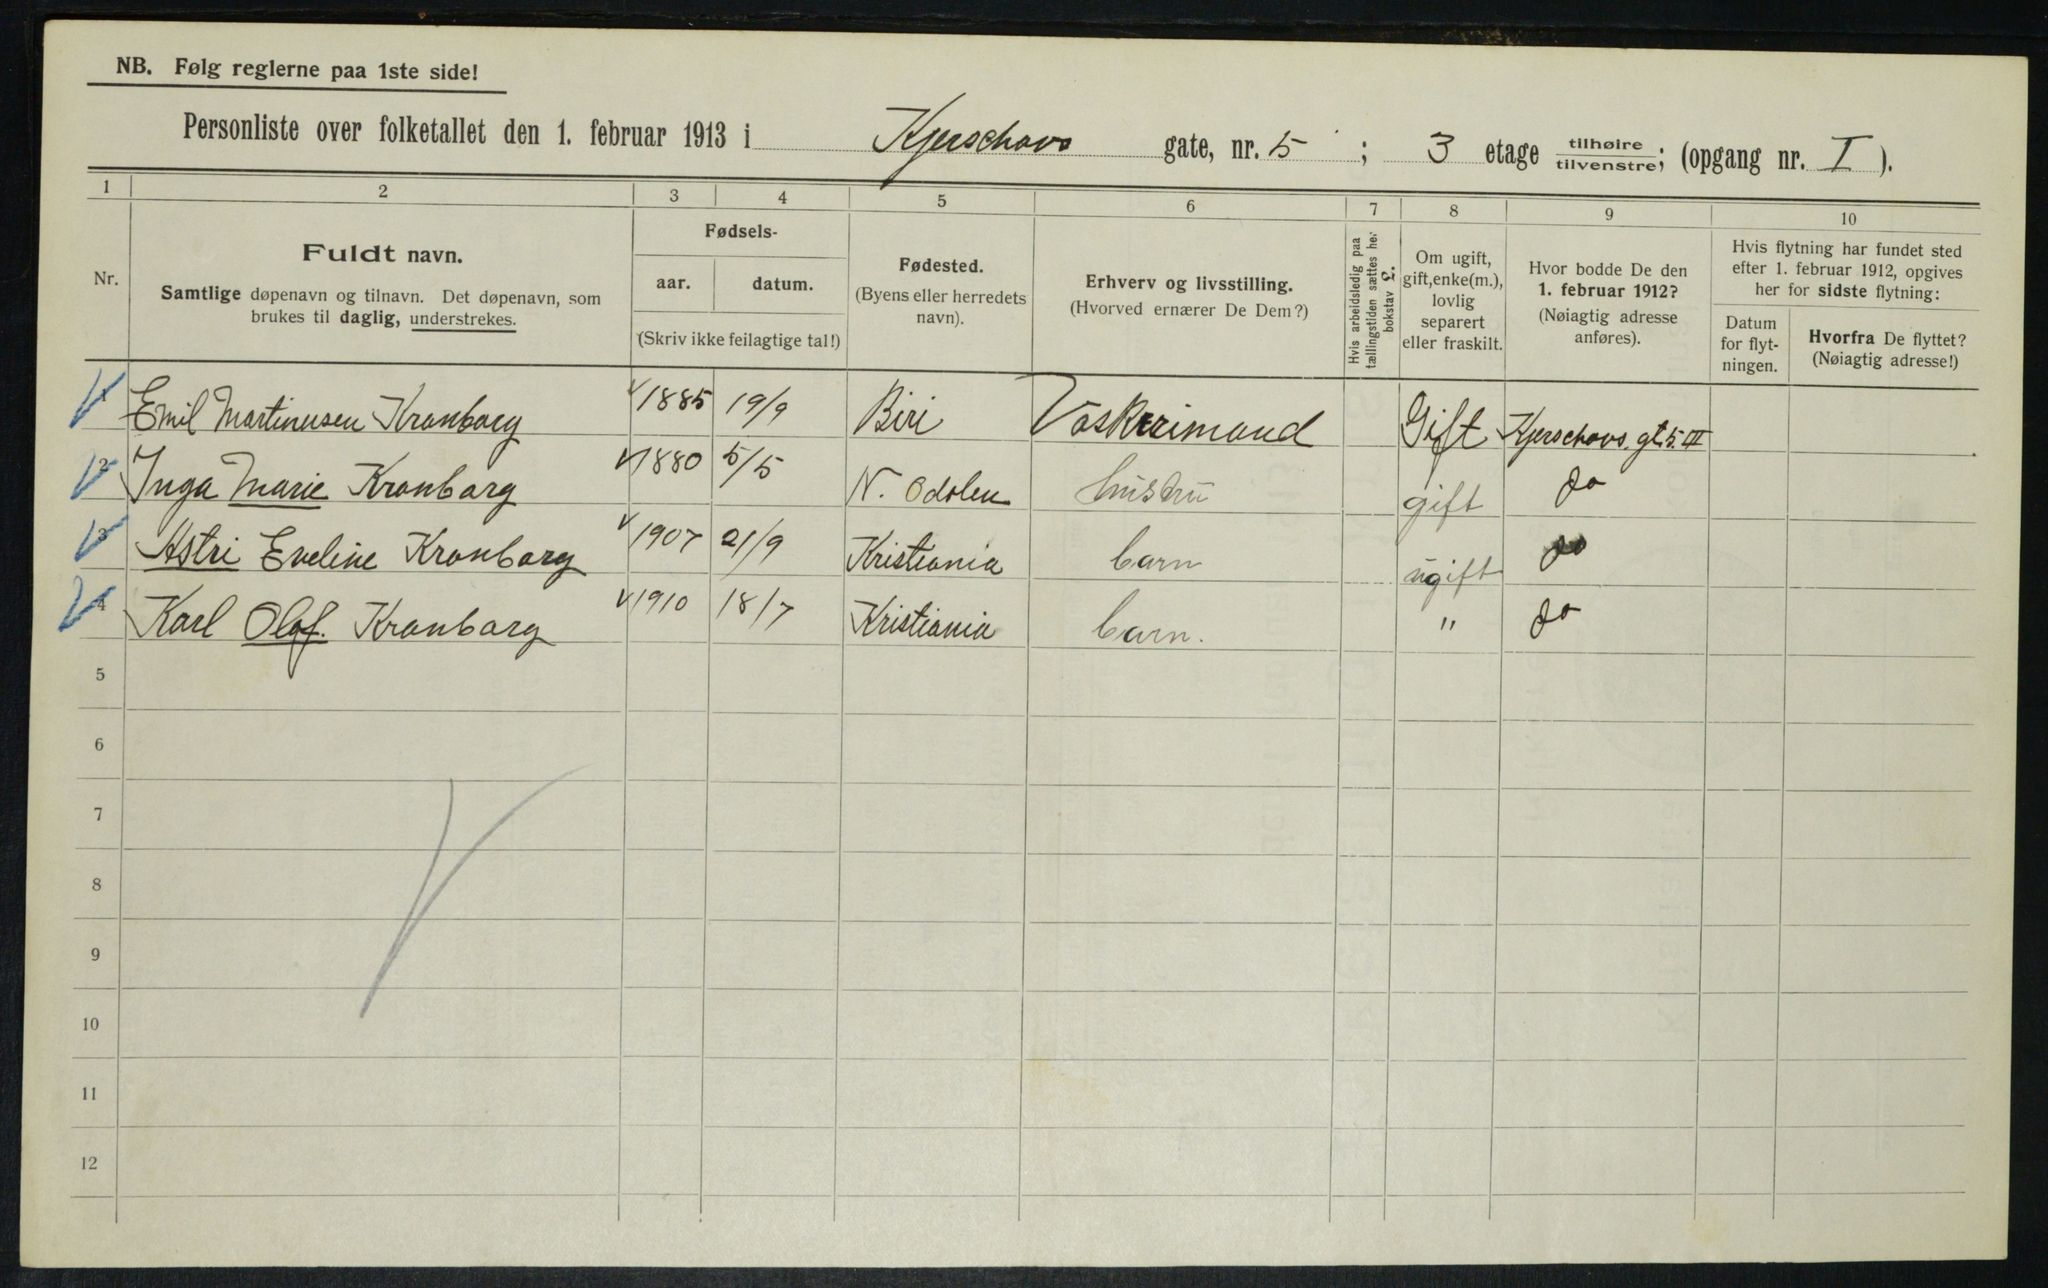 NB. Følg reglerne paa 1ste side!
Personliste over folketallet den 1. februar 1913 i Kjerschovs gate, nr. 5 ; 3 etage tilhøire/tilvenstre; (opgang nr. I ).
1 2 3 4 5 6 7 8 9 10
Nr.
Fuldt navn.
Samtlige døpenavn og tilnavn. Det døpenavn, som
brukes til daglig, understrekes.
Fødsels-
aar. datum.
(Skriv ikke feilagtige tal!)
Fødested.
(Byens eller herredets
navn).
Erhverv og livsstilling.
(Hvorved ernærer De Dem?)
Hvis arbeidsledig paa
tællingstiden sættes her
bokstav L.
Om ugift,
gift, enke(m.),
lovlig
separert
eller fraskilt.
Hvor bodde De den
1. februar 1912?
(Nøiagtig adresse
anføres).
Hvis flytning har fundet sted
efter 1. februar 1912, opgives
her for sidste flytning:
Datum
for flyt-
ningen.
Hvorfra De flyttet?
(Nøiagtig adresse!)
1 Emil Martinusen Kronborg 1885 19/9 Biri Vaskerimand Gift Kjerschovs gt. 5. III
2 Inga Marie Kronborg 1880 5/5 N. Odolen hustru gift do
3 Astri Eveline Kronborg 1907 21/9 Kristiania barn ugift do
4 Karl Olaf. Kronborg 1910 18/7 Kristiania barn. " do
5
6
7
8
9
10
11
12